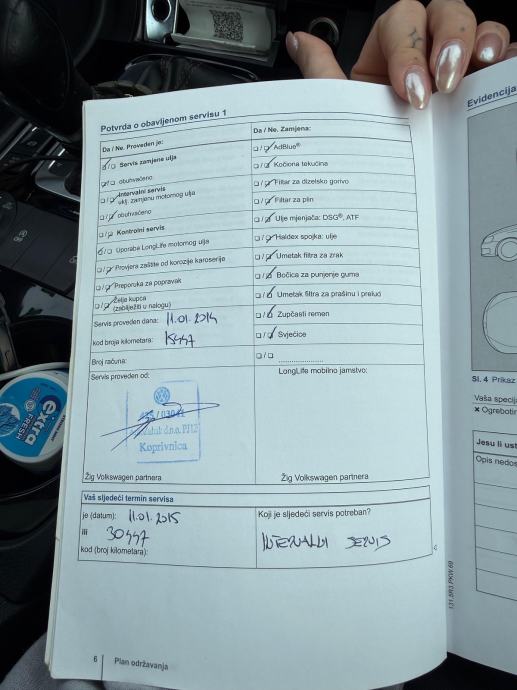 Potvrda o obavljenom servisu 1
Da / Ne. Proveden je:
Servis zamjene ulja
obuhvaćeno
Intervalni servis
uklj. zamjenu motornog ulja
obuhvaćeno
Kontrolni servis
Uporaba LongLife motornog ulja
Provjera zaštite od korozije karoserije
Preporuka za popravak
Želje kupca
(zabilježiti u nalogu)
Servis proveden dana: 11.01.2014
kod broja kilometara: 15447
Broj računa:
Servis proveden od:
Koprivnica
Žig Volkswagen partnera
Da / Ne. Zamjena:
AdBlue®
Kočiona tekućina
Filtar za dizelsko gorivo
Filtar za plin
Ulje mjenjača: DSG®, ATF
Haldex spojka: ulje
Umetak filtra za zrak
Bočica za punjenje guma
Umetak filtra za prašinu i prelud
Zupčasti remen
Svjećice
LongLife mobilno jamstvo:
Žig Volkswagen partnera
Vaš sljedeći termin servisa
je (datum): 11.01.2015
ili 30447
kod (broj kilometara):
Koji je sljedeći servis potreban?
INTERVALNI SERVIS
6 Plan održavanja
131.5R3.PKW.69
Evidencija
Sl. 4 Prikaz
Vaša specij
× Ogrebotin
Jesu li ust
Opis nedos
extra
FRESH